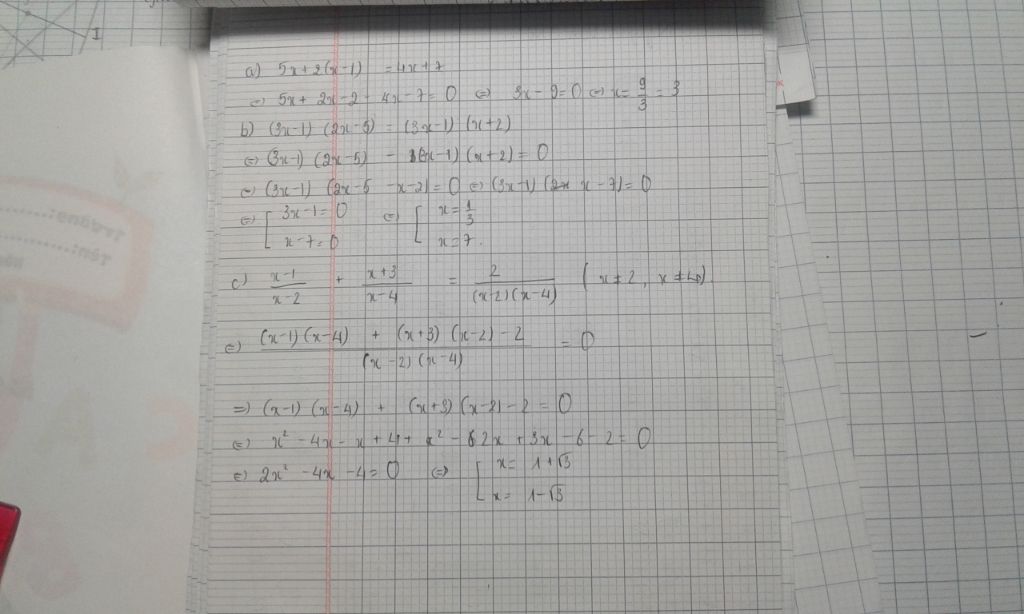 I
a) 5x + 2(x-1) = 4x+7
⇔ 5x + 2x - 2 - 4x - 7 = 0 ⇔ 3x - 9 = 0 ⇔ x = 9/3 = 3
b) (3x-1) (2x-5) = (3x-1) (x+2)
⇔ (3x-1) (2x-5) - (3x-1) (x+2) = 0
⇔ (3x-1) (2x-5 -x-2) = 0 ⇔ (3x-1) (x-7) = 0
⇔ [ 3x-1 = 0 ⇔ [ x = 1/3
x-7 = 0 x = 7.
c) (x-1)/(x-2) + (x+3)/(x-4) = 2/((x-2)(x-4)) (x ≠ 2, x ≠ 4).
⇔ ((x-1)(x-4) + (x+3)(x-2) - 2)/((x-2)(x-4)) = 0
⇒ (x-1) (x-4) + (x+3) (x-2) - 2 = 0
⇔ x² - 4x - x + 4 + x² - 2x + 3x - 6 - 2 = 0
⇔ 2x² - 4x - 4 = 0 ⇔ [ x = 1+√3
x = 1-√3